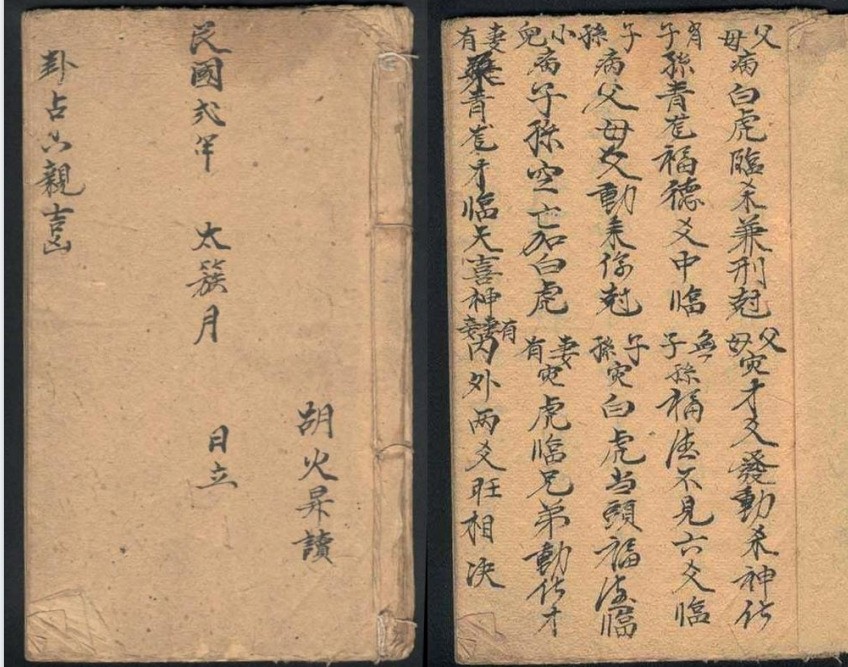 胡火昇讀
民國弍年 太簇月 日立
卦占六親吉凶
父母病白虎臨杀兼刑尅 父母灾才爻發動杀神化
有子孫青龙福德爻中临 無子孫福德不見六爻臨
子孫病父母爻動来伤尅 子孫灾白虎当頭福德臨
小兒病子孫空亡加白虎 妻有灾虎临兄弟動化才
妻有青龙才临天喜神 有妻妾内外两爻旺相决